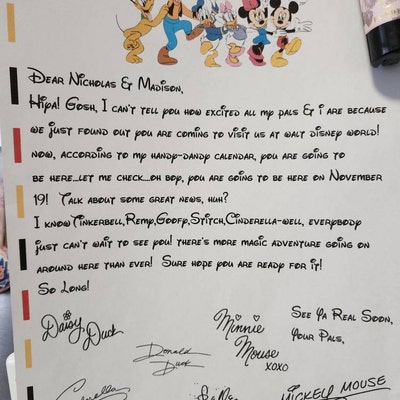 Dear Nicholas & Madison,
Hiya! Gosh, I can't tell you how excited all my pals & i are because
we just found out you are coming to visit us at walt disney world!
now, according to my handy-dandy calendar, you are going to
be here...let me check...oh boy, you are going to be here on November
19! Talk about some great news, huh?
I know Tinkerbell,Remy,Goofy,Stitch,Cinderella-well, everybody
just can't wait to see you! there's more magic adventure going on
around here than ever! Sure hope you are ready for it!
So Long!
See Ya Real Soon,
Your Pals,
Daisy Duck
Donald Duck
Minnie Mouse
xoxo
Cinderella
MICKEY MOUSE